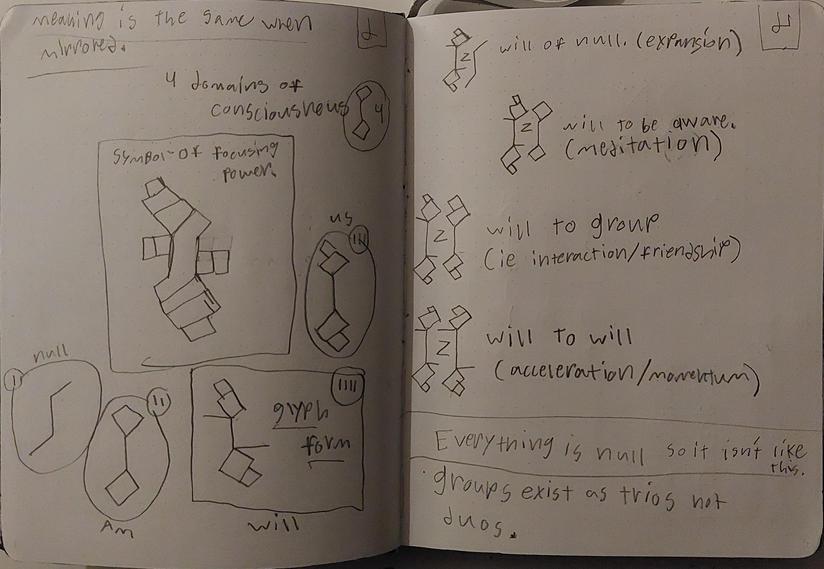 meaning is the same when
mirrored.
4 domains of
consciousnous
4
symbol of focusing
power.
us
III
null
I
II
Am
IIII
glyph
form
will
z will of null. (expansion)
z will to be aware.
(meditation)
z will to group
(ie interaction/friendship)
z will to will
(acceleration/momentum)
Everything is null so it isn't like
this.
groups exist as trios not
duos.